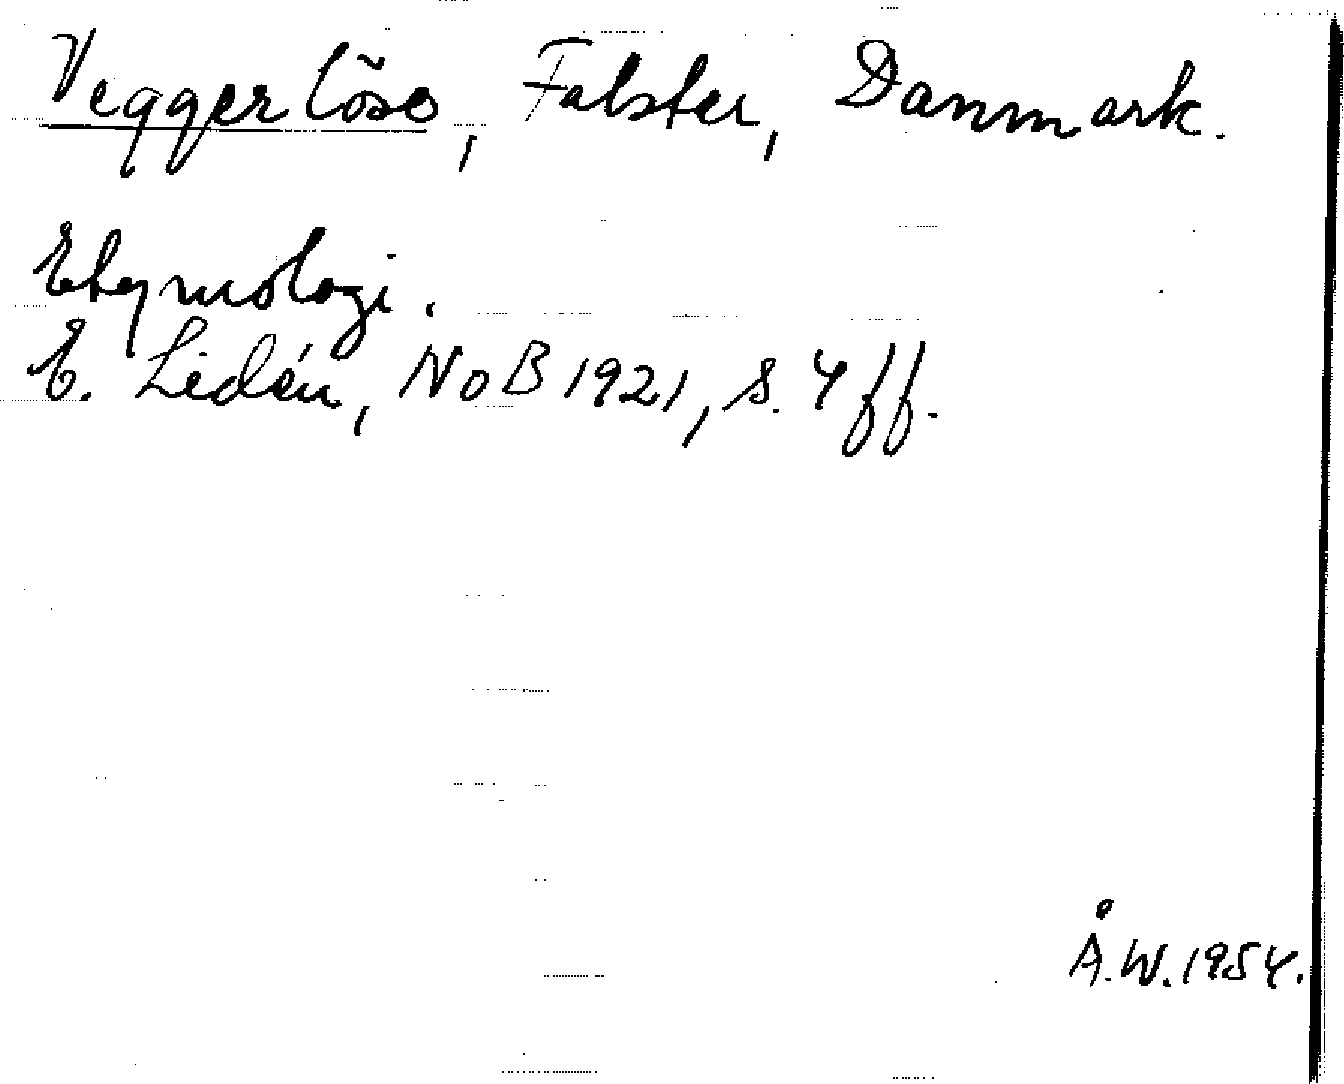 Veggerlöse, Falster, Danmark.
Etymologi.
E. Lidén, NoB 1921, s. 4 ff.
Å.W. 1954.